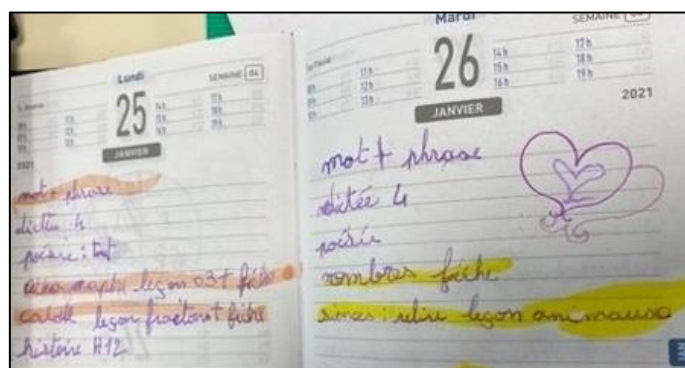 Lundi
SEMAINE 04
25
JANVIER
2021
mot + phrase
dictée 4
poésie : tout
leçon 03 + fiche
calcul leçon fractions + fiche
histoire H12
Mardi
SEMAINE
26
14h 17h
15h 18h
16h 19h
11h
12h
13h
JANVIER
2021
mot + phrase
dictée 4
poésie
nombres fiche
sciences : relire leçon animaux